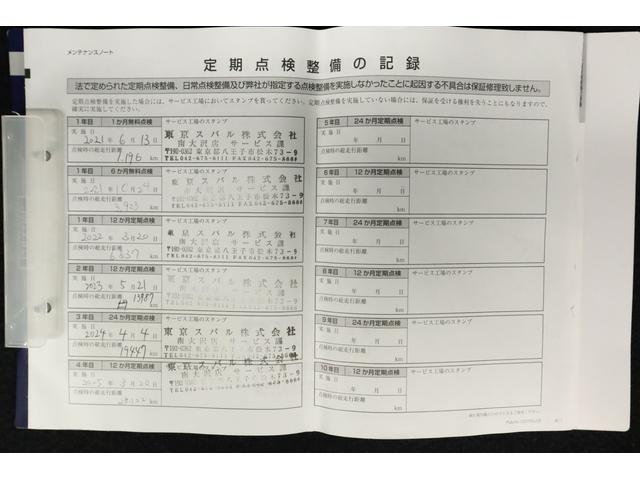 メンテナンスノート
定期点検整備の記録
法で定められた定期点検整備、日常点検整備及び弊社が指定する点検整備を実施しなかったことに起因する不具合は保証修理致しません。
定期点検整備を実施した場合には、サービス工場においてスタンプを貰ってください。定期点検整備を実施していない場合には、保証を受ける権利を失うことにもなりますので、
確実に実施してください。
1年目 1か月無料点検 サービス工場のスタンプ
実施日
2021年 6月 13日
点検時の総走行距離
km
東京スバル株式会社
南大沢店 サービス課
〒192-0362 東京都八王子市松木73-9
TEL042-675-8111 FAX042-675-8688
1年目 6か月無料点検 サービス工場のスタンプ
実施日
2021年 10月
点検時の総走行距離
km
東京スバル株式会社
南大沢店 サービス課
〒192-0362 東京都八王子市松木73-9
TEL042-675-8111 FAX042-675-8688
1年目 12か月定期点検 サービス工場のスタンプ
実施日
2022年 3月20日
点検時の総走行距離
6837 km
東京スバル株式会社
南大沢店 サービス課
〒192-0362 東京都八王子市松木73-9
TEL042-675-8111 FAX042-675-8688
2年目 12か月定期点検 サービス工場のスタンプ
実施日
2023年 5月 21日
点検時の総走行距離
km
3年目 24か月定期点検 サービス工場のスタンプ
実施日
2024年 4月 4日
点検時の総走行距離
19447 km
東京スバル株式会社
南大沢店 サービス課
〒192-0362 東京都八王子市松木73-9
TEL042-675-8111 FAX042-675-8688
4年目 12か月定期点検 サービス工場のスタンプ
実施日
2025年 3月20日
点検時の総走行距離
km
東京スバル株式会社
南大沢店 サービス課
5年目 24か月定期点検 サービス工場のスタンプ
実施日
年 月 日
点検時の総走行距離
km
6年目 12か月定期点検 サービス工場のスタンプ
実施日
年 月 日
点検時の総走行距離
km
7年目 24か月定期点検 サービス工場のスタンプ
実施日
年 月 日
点検時の総走行距離
km
8年目 12か月定期点検 サービス工場のスタンプ
実施日
年 月 日
点検時の総走行距離
km
9年目 24か月定期点検 サービス工場のスタンプ
実施日
年 月 日
点検時の総走行距離
km
10年目 12か月定期点検 サービス工場のスタンプ
実施日
年 月 日
点検時の総走行距離
km